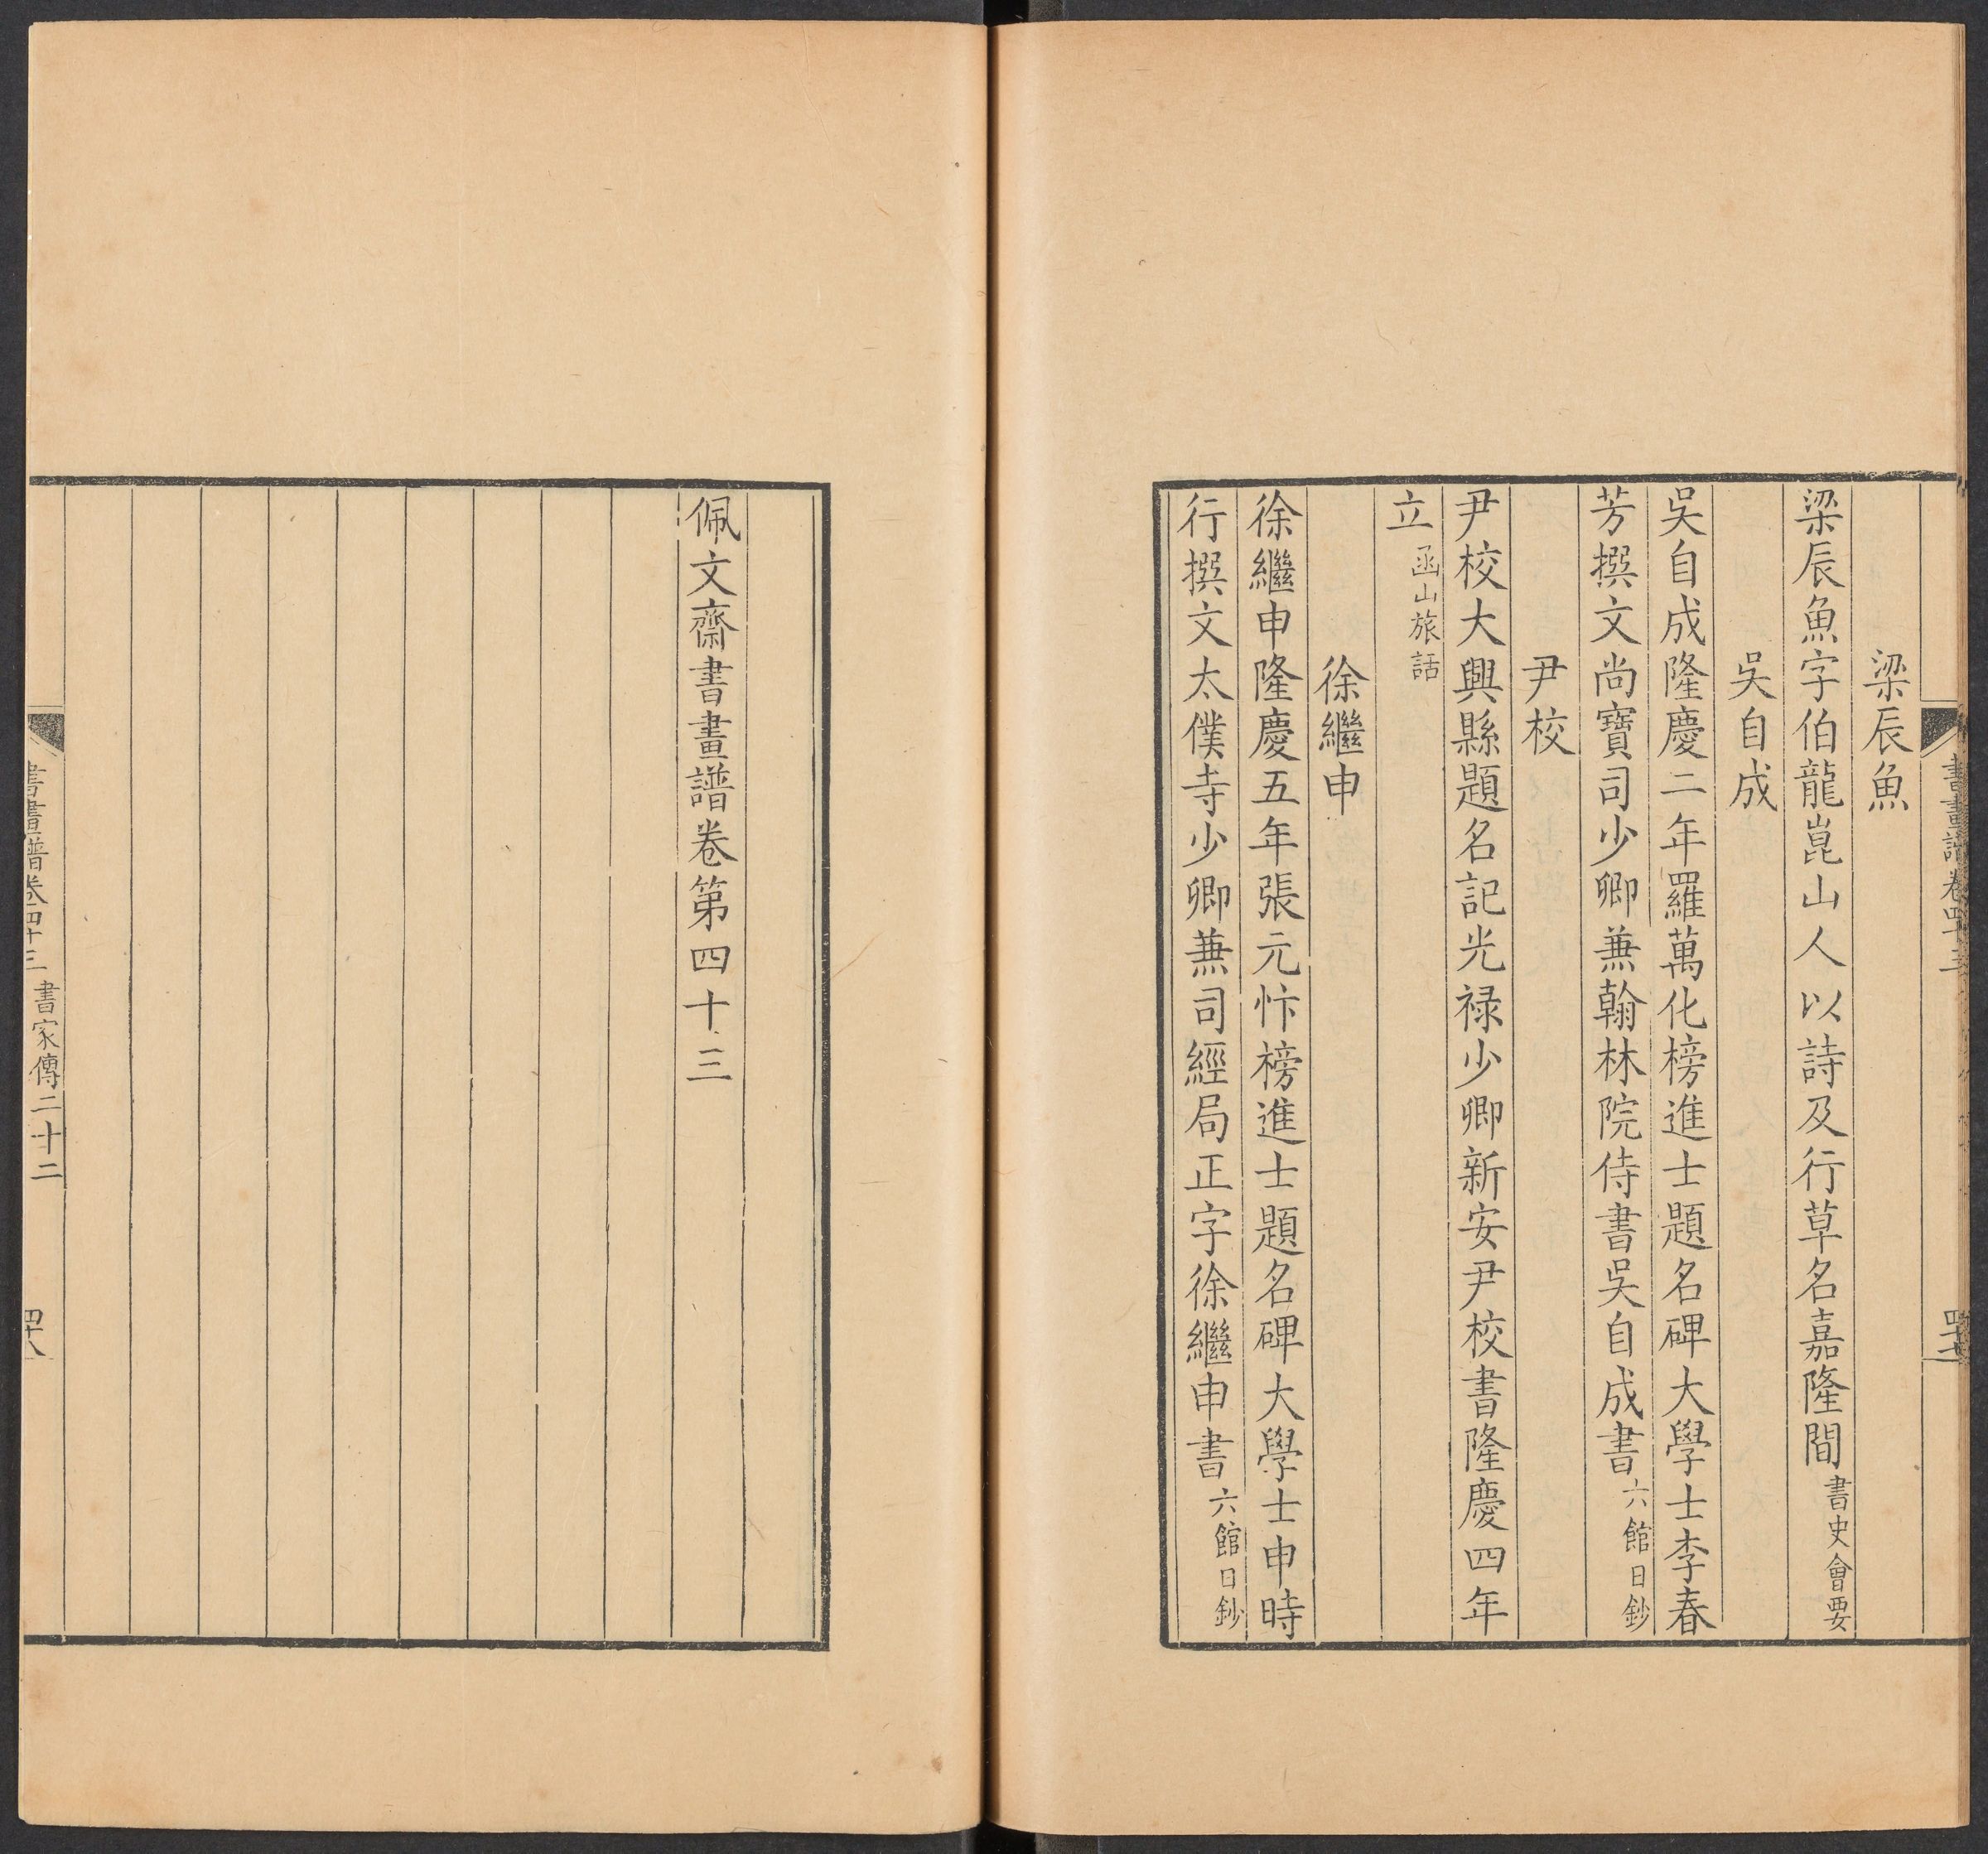 書畫譜卷四十三
四十七
梁辰魚
梁辰魚字伯龍崑山人以詩及行草名嘉隆間書史會要
吳自成
吳自成隆慶二年羅萬化榜進士題名碑大學士李春
芳撰文尚寶司少卿兼翰林院侍書吳自成書六館日鈔
尹校
尹校大興縣題名記光禄少卿新安尹校書隆慶四年
立函山旅話
徐繼申
徐繼申隆慶五年張元忭榜進士題名碑大學士申時
行撰文太僕寺少卿兼司經局正字徐繼申書六館日鈔
佩文齋書畫譜卷第四十三
書畫譜卷四十三 書家傳二十二
四十八